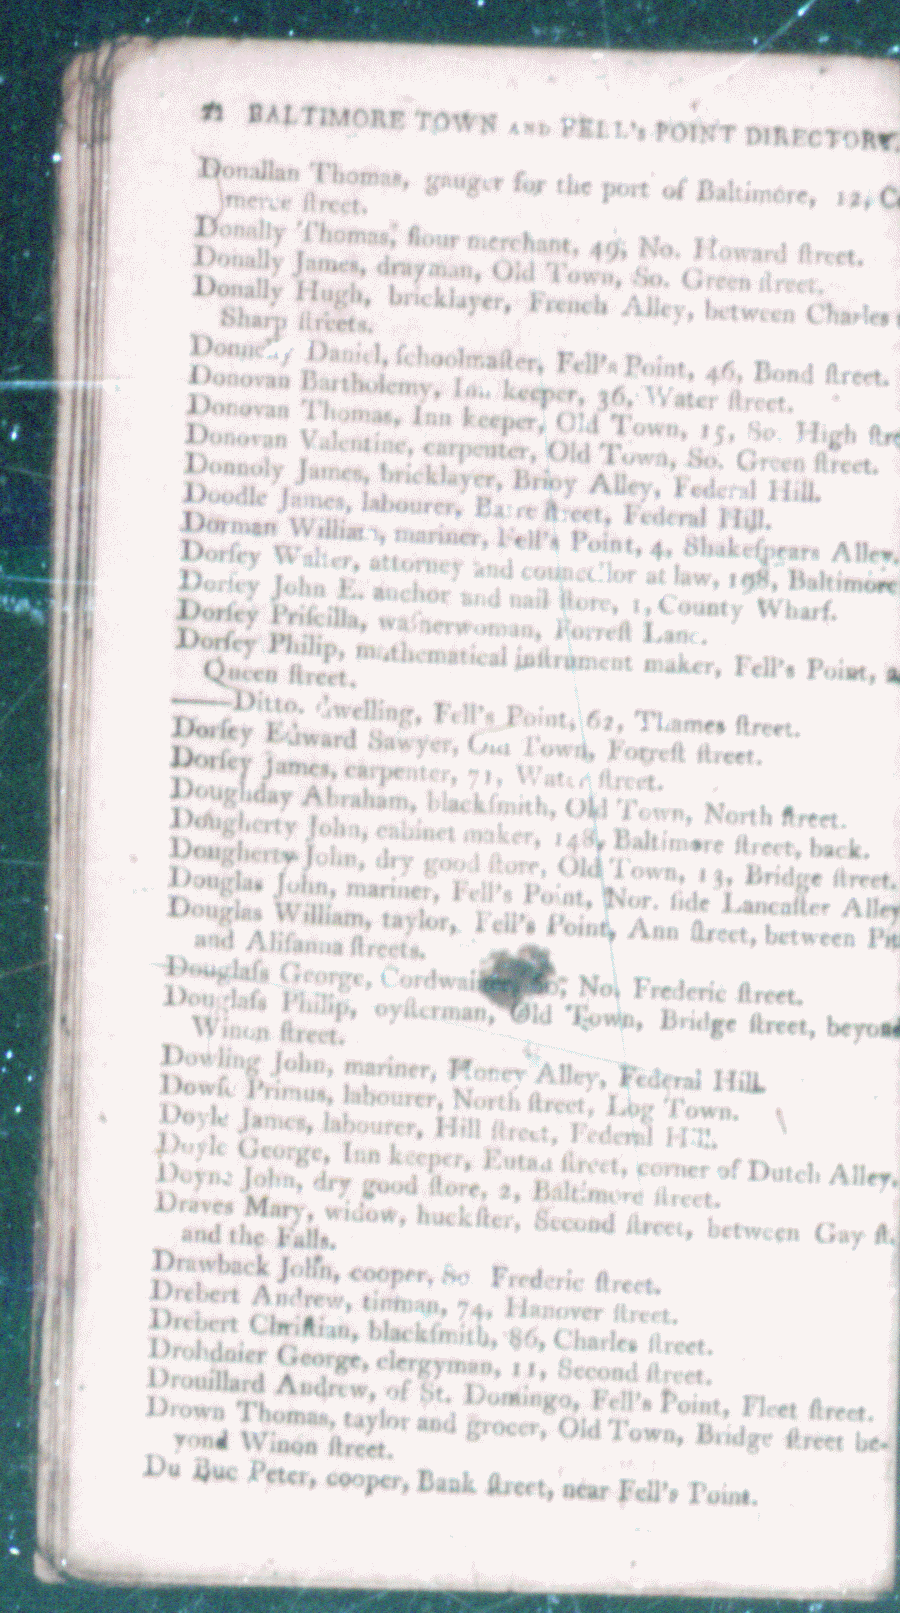 BALTIMORE TOWN AND FELL's POINT DIRECTORY.
Donallan Thomas, gauger for the port of Baltimore, 12, Co
merce ſtreet.
Donally Thomas, flour merchant, 49, No. Howard ſtreet.
Donally James, drayman, Old Town, So. Green ſtreet.
Donally Hugh, bricklayer, French Alley, between Charles
Sharp ſtreets.
Daniel, ſchoolmaſter, Fell's Point, 46, Bond ſtreet.
Donovan Bartholemy, keeper, 36, Water ſtreet.
Donovan Thomas, Inn keeper, Old Town, 15, So. High ſtre
Donovan Valentine, carpenter, Old Town, So. Green ſtreet.
Donnoly James, bricklayer, Brioy Alley, Federal Hill.
Doodle James, labourer, Barre ſtreet, Federal Hill.
Dorman William, mariner, Fell's Point, 4, Shakeſpears Alley.
Dorſey Walter, attorney and councellor at law, 198, Baltimore
Dorſey John E. anchor and nail ſtore, 1, County Wharf.
Dorſey Priſcilla, waſherwoman, Forreſt Lane.
Dorſey Philip, mathematical inſtrument maker, Fell's Point,
Queen ſtreet.
——Ditto. dwelling, Fell's Point, 62, Thames ſtreet.
Dorſey Edward Sawyer, Old Town, Forreſt ſtreet.
Dorſey James, carpenter, 71, Water ſtreet.
Doughday Abraham, blackſmith, Old Town, North ſtreet.
Dougherty John, cabinet maker, 148, Baltimore ſtreet, back.
Dougherty John, dry good ſtore, Old Town, 13, Bridge ſtreet.
Douglas John, mariner, Fell's Point, Nor. ſide Lancaſter Alley
Douglas William, taylor, Fell's Point, Ann ſtreet, between Pit
and Aliſanna ſtreets.
Douglaſs George, Cordwainer, No. Frederic ſtreet.
Douglaſs Philip, oyſterman, Old Town, Bridge ſtreet, beyond
Winon ſtreet.
Dowling John, mariner, Honey Alley, Federal Hill.
Dowſe Primus, labourer, North ſtreet, Log Town.
Doyle James, labourer, Hill ſtreet, Federal Hill.
Doyle George, Inn keeper, Eutaa ſtreet, corner of Dutch Alley.
Doyne John, dry good ſtore, 2, Baltimore ſtreet.
Draves Mary, widow, huckſter, Second ſtreet, between Gay ſt.
and the Falls.
Drawback John, cooper, So Frederic ſtreet.
Drebert Andrew, tinman, 74, Hanover ſtreet.
Drebert Chriſtian, blackſmith, 86, Charles ſtreet.
Drohdnier George, clergyman, 11, Second ſtreet.
Drouillard Andrew, of St. Domingo, Fell's Point, Fleet ſtreet.
Drown Thomas, taylor and grocer, Old Town, Bridge ſtreet be-
yond Winon ſtreet.
Du Buc Peter, cooper, Bank ſtreet, near Fell's Point.